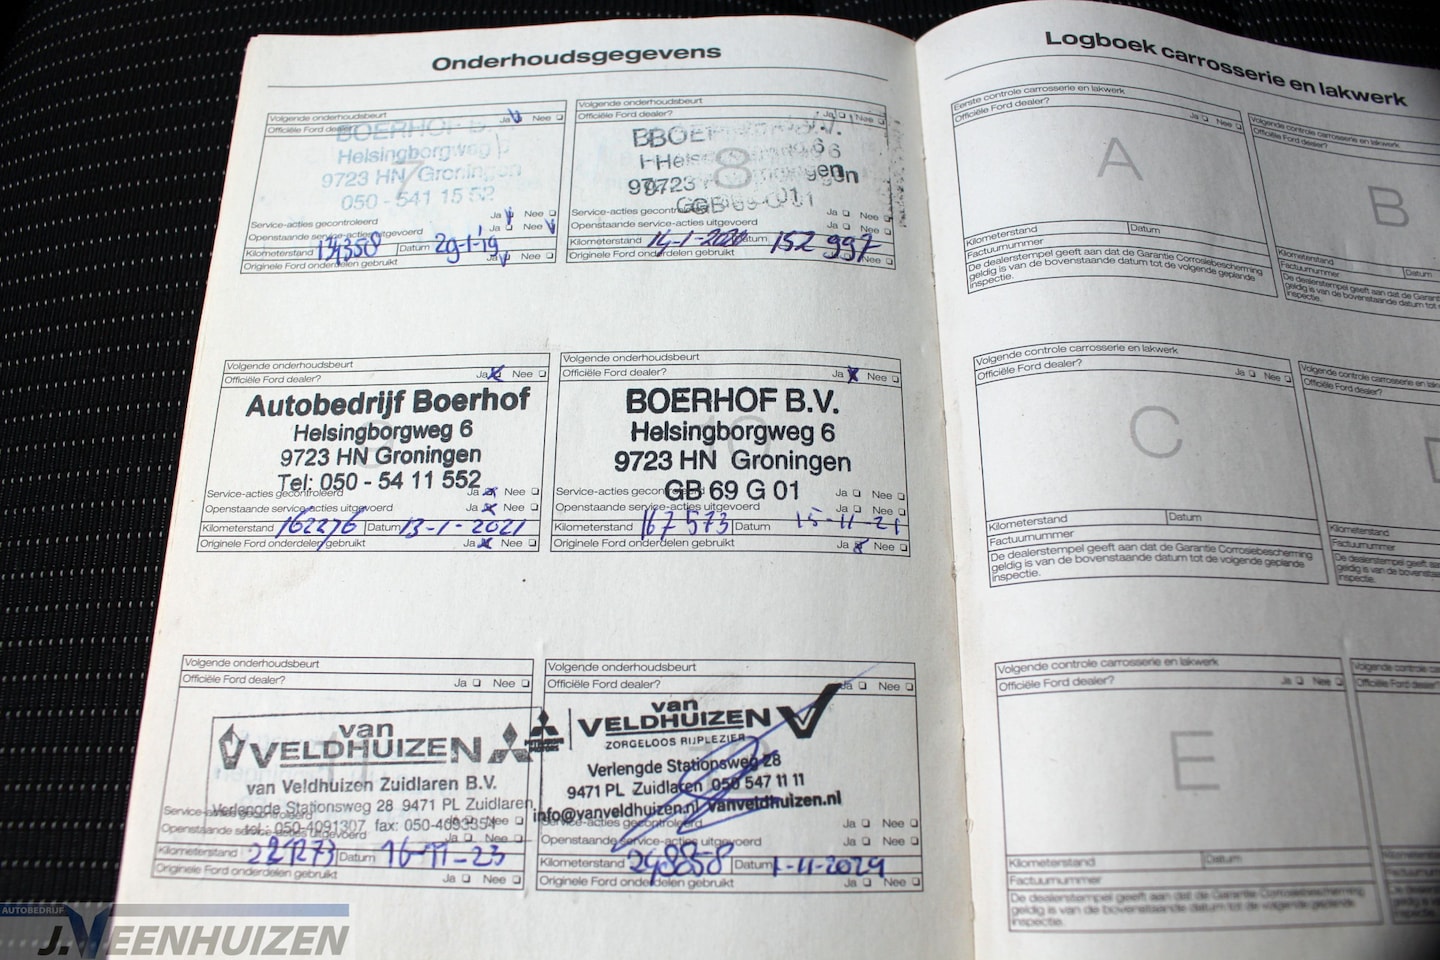 Onderhoudsgegevens
Volgende onderhoudsbeurt
Officiële Ford dealer? Ja Nee
BOERHOF B
Helsingborgweg
9723 HN Groningen
050 - 541 15 52
7
Service-acties gecontroleerd Ja Nee
Openstaande service-acties uitgevoerd Ja Nee
Kilometerstand 134358 Datum 29-1-19
Originele Ford onderdelen gebruikt Ja Nee
Volgende onderhoudsbeurt
Officiële Ford dealer? Ja Nee
8
Service-acties gecontroleerd Ja Nee
Openstaande service-acties uitgevoerd Ja Nee
Kilometerstand 14-1-2020 Datum 152 997
Originele Ford onderdelen gebruikt Ja Nee
Volgende onderhoudsbeurt
Officiële Ford dealer? Ja Nee
Autobedrijf Boerhof
Helsingborgweg 6
9723 HN Groningen
Tel: 050 - 54 11 552
Service-acties gecontroleerd Ja Nee
Openstaande service-acties uitgevoerd Ja Nee
Kilometerstand 162276 Datum 13-1-2021
Originele Ford onderdelen gebruikt Ja Nee
Volgende onderhoudsbeurt
Officiële Ford dealer? Ja Nee
BOERHOF B.V.
Helsingborgweg 6
9723 HN Groningen
GB 69 G 01
Service-acties gecontroleerd Ja Nee
Openstaande service-acties uitgevoerd Ja Nee
Kilometerstand 167 573 Datum 15-11-21
Originele Ford onderdelen gebruikt Ja Nee
Volgende onderhoudsbeurt
Officiële Ford dealer? Ja Nee
van
VELDHUIZEN
van Veldhuizen Zuidlaren B.V.
Verlengde Stationsweg 28 9471 PL Zuidlaren
tel.: 050-4091307 fax: 050-4093354
Service-acties gecontroleerd Ja Nee
Openstaande service-acties uitgevoerd Ja Nee
Kilometerstand 221273 Datum 16-11-23
Originele Ford onderdelen gebruikt Ja Nee
Volgende onderhoudsbeurt
Officiële Ford dealer? Ja Nee
MITSUBISHI MOTORS
van
VELDHUIZEN
ZORGELOOS RIJPLEZIER
Verlengde Stationsweg 28
9471 PL Zuidlaren 050 547 11 11
info@vanveldhuizen.nl vanveldhuizen.nl
Service-acties gecontroleerd Ja Nee
Openstaande service-acties uitgevoerd Ja Nee
Kilometerstand 248858 Datum 1-11-2024
Originele Ford onderdelen gebruikt Ja Nee
Logboek carrosserie en lakwerk
Eerste controle carrosserie en lakwerk
Officiële Ford dealer? Ja Nee
A
Kilometerstand Datum
Factuurnummer
De dealerstempel geeft aan dat de Garantie Corrosiebescherming
geldig is van de bovenstaande datum tot de volgende geplande
inspectie.
Volgende controle carrosserie en lakwerk
Officiële Ford dealer?
B
Kilometerstand Datum
Factuurnummer
De dealerstempel geeft aan dat de Garantie
geldig is van de bovenstaande datum tot de
inspectie.
Volgende controle carrosserie en lakwerk
Officiële Ford dealer? Ja Nee
C
Kilometerstand Datum
Factuurnummer
De dealerstempel geeft aan dat de Garantie Corrosiebescherming
geldig is van de bovenstaande datum tot de volgende geplande
inspectie.
Volgende controle carrosserie en
Officiële Ford dealer?
Kilometerstand
Factuurnummer
De dealerstempel geeft aan dat de
geldig is van de bovenstaande datum
inspectie.
Volgende controle carrosserie en lakwerk
Officiële Ford dealer? Ja Nee
E
Kilometerstand Datum
Factuurnummer
De dealerstempel geeft aan dat de Garantie Corrosiebescherming
geldig is van de bovenstaande datum tot de volgende geplande
inspectie.
AUTOBEDRIJF
J. VEENHUIZEN